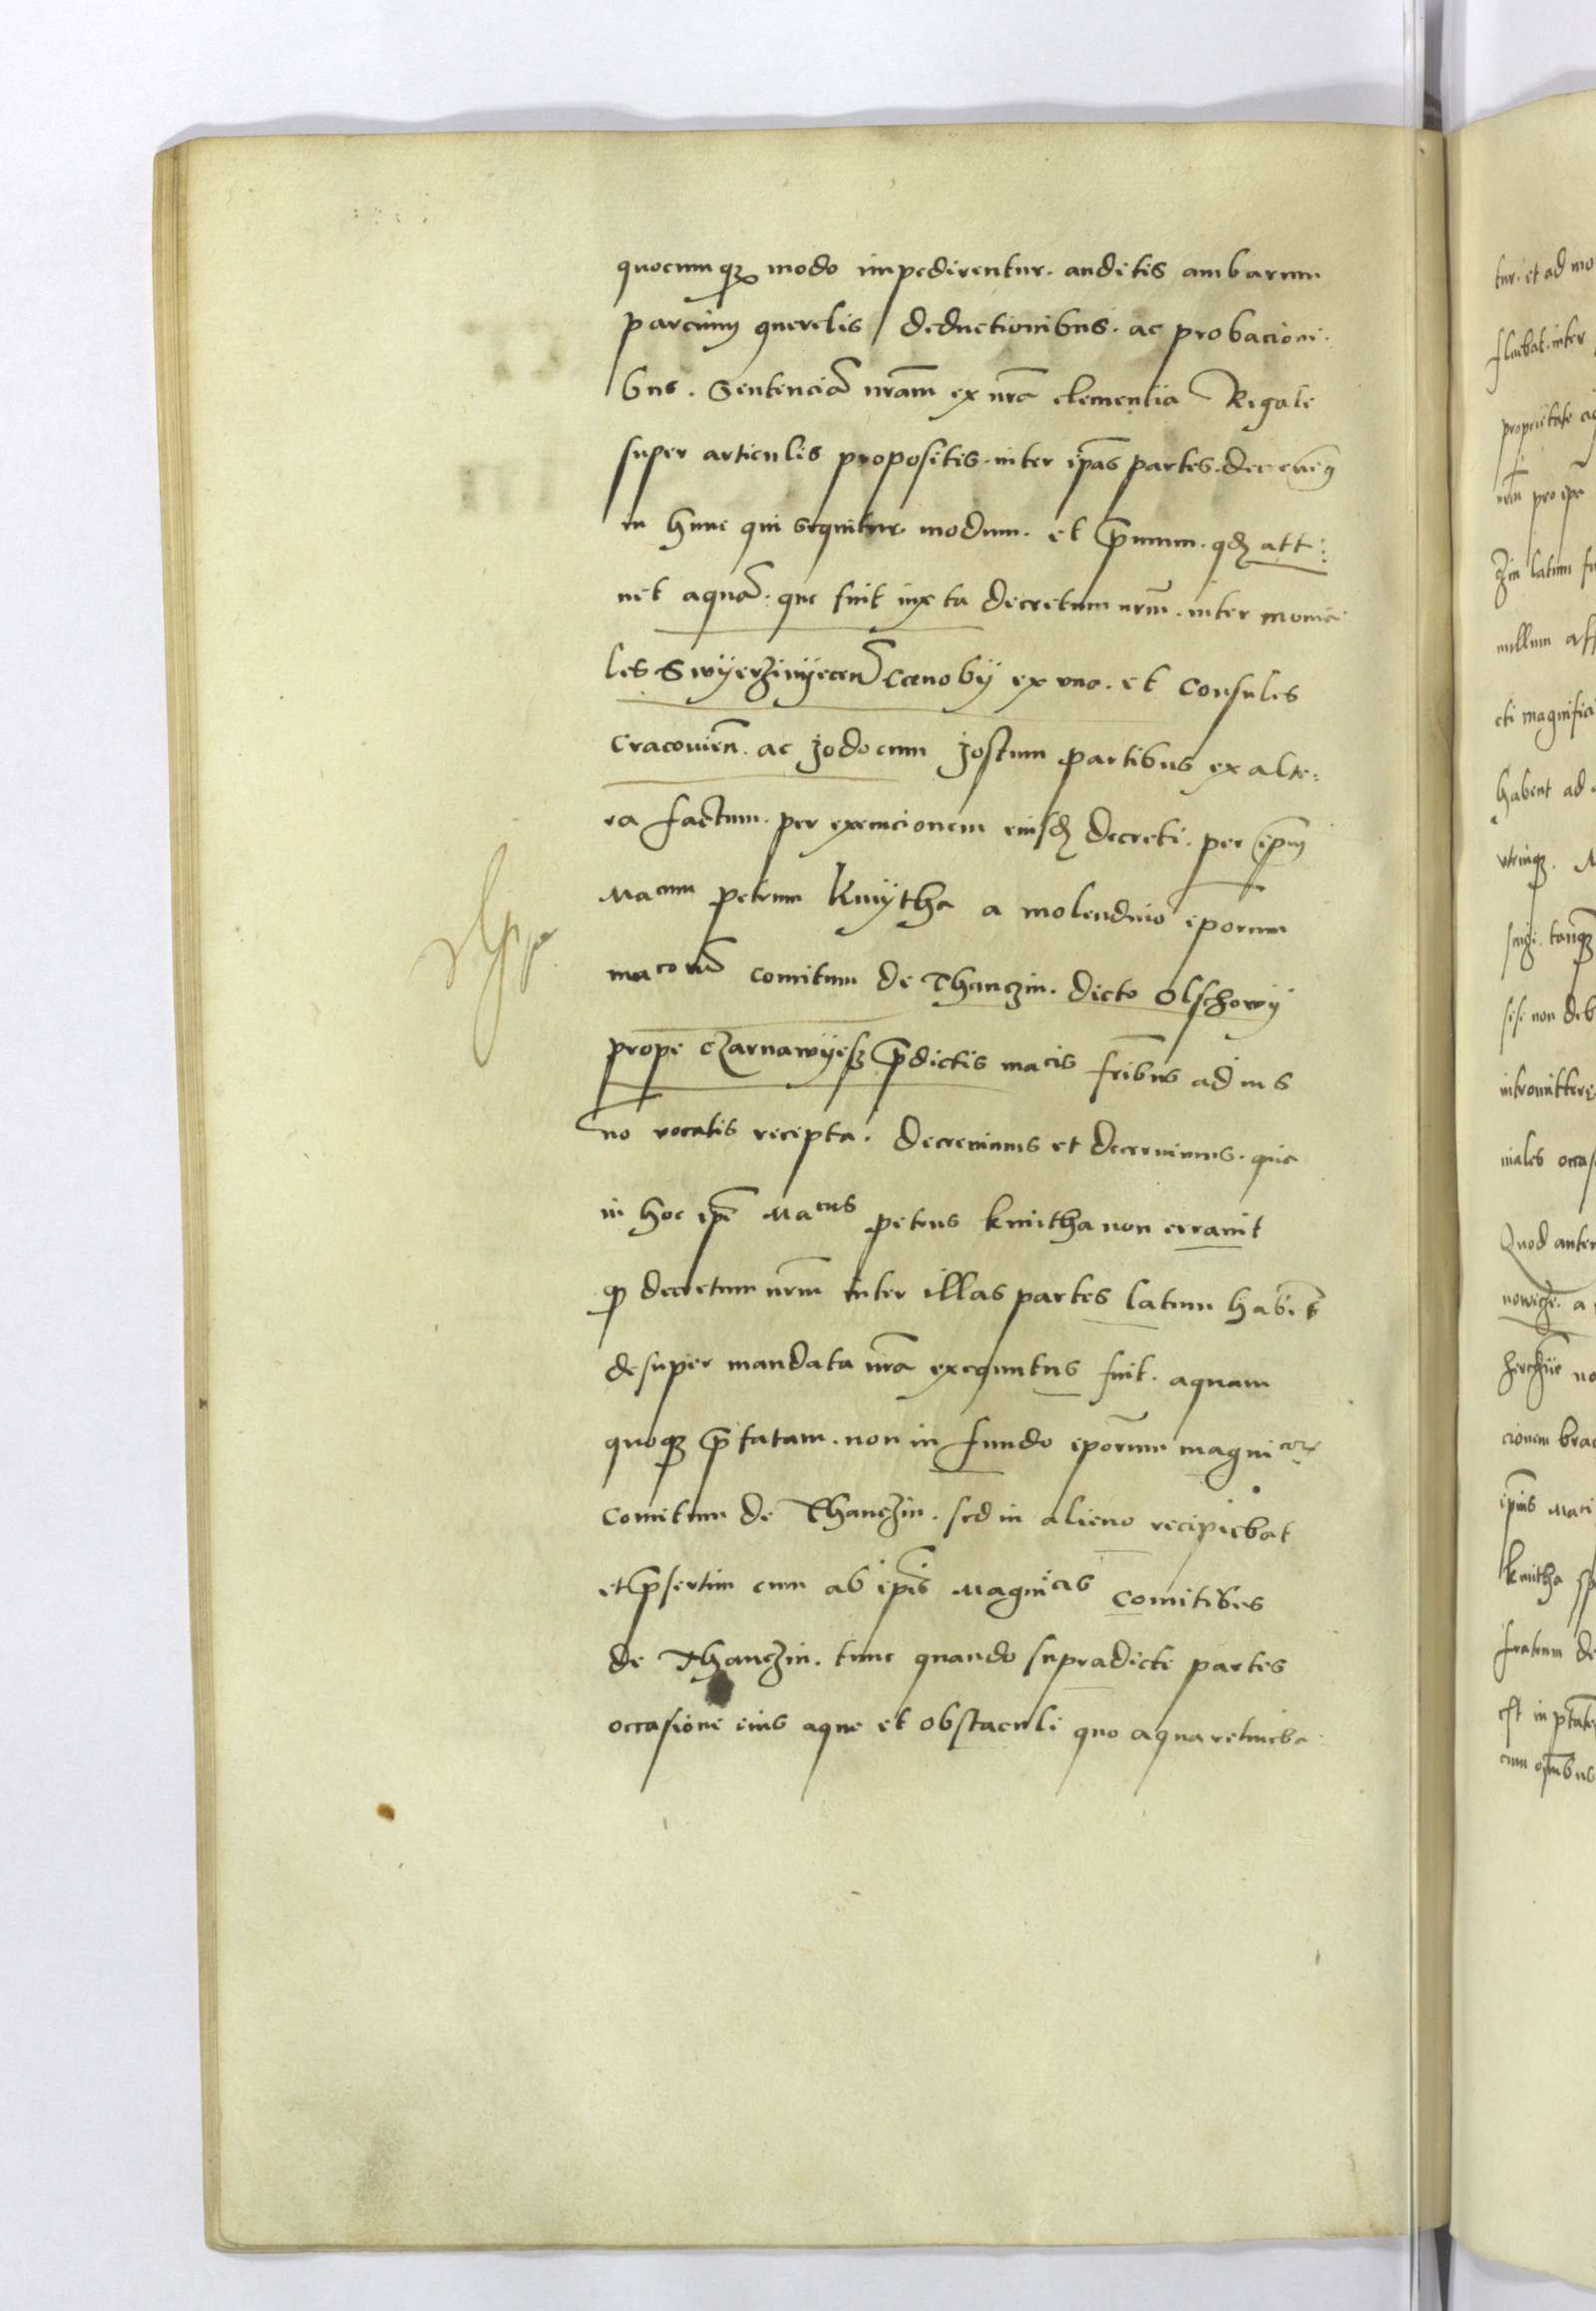 quocumqȝ modo impedirentur. auditis ambarum
parcium querelis / deductionibus. ac probacioni
bus. Sentenciā nrām ex nrā clementia Regale
super articulis propositis. inter ipās partes. decrevimꝰ
in hunc qui sequitur modum. et p̄mum. qđ atti:
net aquā. que fuit iuxta decretum nrūm. inter monia
les Swyerzinyecen̄ Cenobÿ ex vno. et Consules
Cracovien̄. ac Jodocum Jostum partibus ex alte:
ra factum. per execucionem eiusđ decreti. per ip̄m
Macum petrum kmÿtha a molendino ip̄orum
macorū comitum de Thanczin. dicto Olschowÿ
prope Czarnawÿesz p̄dictis macis fr̄ibus ad ius
nō vocatis recepta. decrevimus et decernimus. quia
in hoc ip̄e Macus petrus kmitha non erravit
qȝ decretum nrūm inter illas partes latum habēt
desuper mandata nrā exequutus fuit. aquam
quoqȝ p̄fatam. non in fundo ip̄orum magnicoꝝ
comitum de Thanczin. sed in alieno recipiebat
et p̄sertim cum ab ip̄is Magnicis comitibus
de Thanczin. tunc quando supradicte partes
occasione eius aque et obstaculi quo aqua retineba
tur. et ad mo
proprietate
nrm̄ pro ip̄
latum
nullum aff
cti magnifici
habent ad
vtrinqȝ. M
tanqȝ
sese non deb
intromittere
niales occas
Quod autem
cionem brac
ip̄ius Maci
kmitha
fratrum de
est in
cum om̄ibus